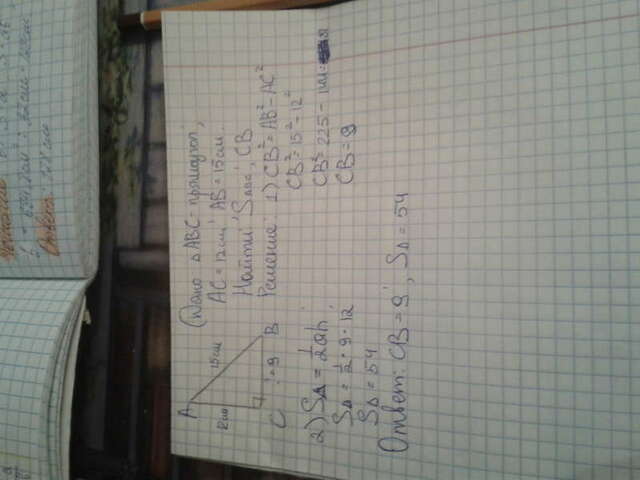 Дано △ABC - прямоугол.,
AC = 12 см, AB = 15 см.
Найти: S△ABC; CB
Решение: 1) CB² = AB² - AC²
CB² = 15² - 12²
CB² = 225 - 144 =
CB = 9
A
15 см
12 см
C
9
B
2) S△ = 1/2 ah
S△ = 1/2 · 9 · 12
S△ = 54
Ответ: CB = 9, S△ = 54
Ответ: